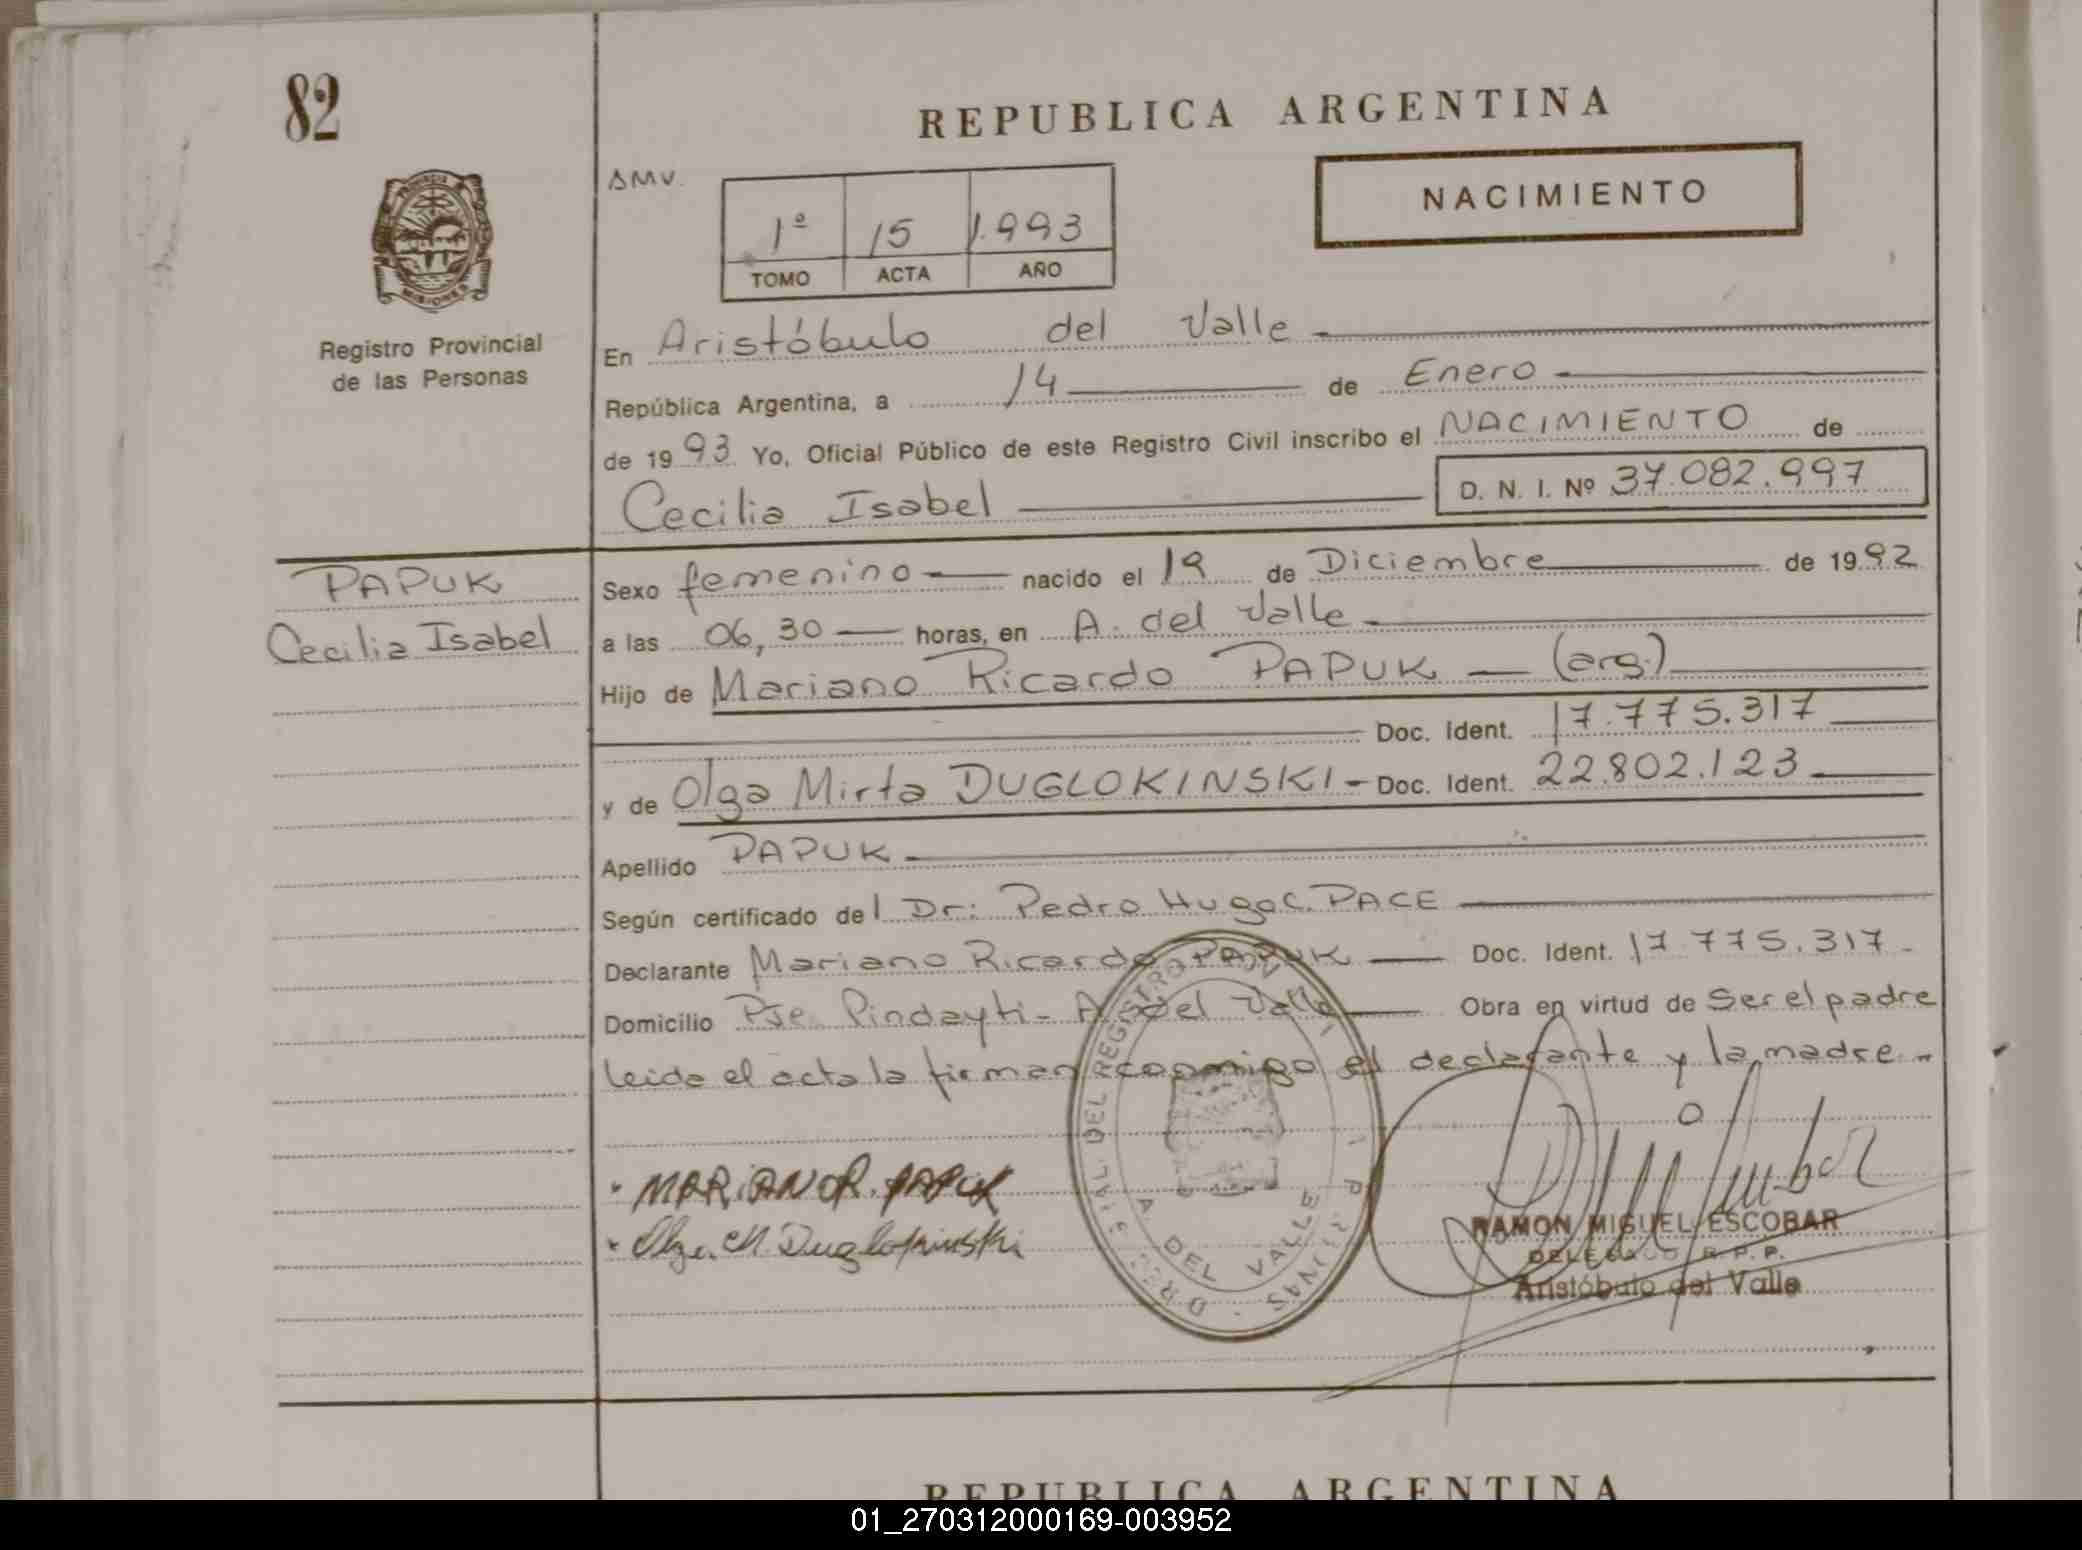 82
REPUBLICA ARGENTINA
PROVINCIA
MISIONES
Registro Provincial
de las Personas
SMV.
1º 15 1.993
TOMO ACTA AÑO
NACIMIENTO
En Aristóbulo del Valle
República Argentina, a 14 de Enero
de 1993 Yo, Oficial Público de este Registro Civil inscribo el NACIMIENTO de
Cecilia Isabel D. N. I. Nº 37.082.997
PAPUK
Cecilia Isabel
Sexo femenino nacido el 19 de Diciembre de 1992
a las 06,30 horas, en A. del Valle
Hijo de Mariano Ricardo PAPUK — (arg.)
Doc. Ident. 17.775.317
y de Olga Mirta DUGLOKINSKI - Doc. Ident. 22.802.123
Apellido PAPUK
Según certificado del Dr: Pedro Hugo C. PACE
Declarante Mariano Ricardo PAPUK Doc. Ident. 17.775.317-
Domicilio Pje. Pindayti - A. del Valle Obra en virtud de Ser el padre
leida el acta la firman conmigo el declarante y la madre.-
MARIANO R. PAPUK
Olga M. Duglokinski
A. DEL VALLE
RAMON MIGUEL ESCOBAR
DELEGADO R.P.P.
Aristóbulo del Valle
REPUBLICA ARGENTINA
01_270312000169-003952